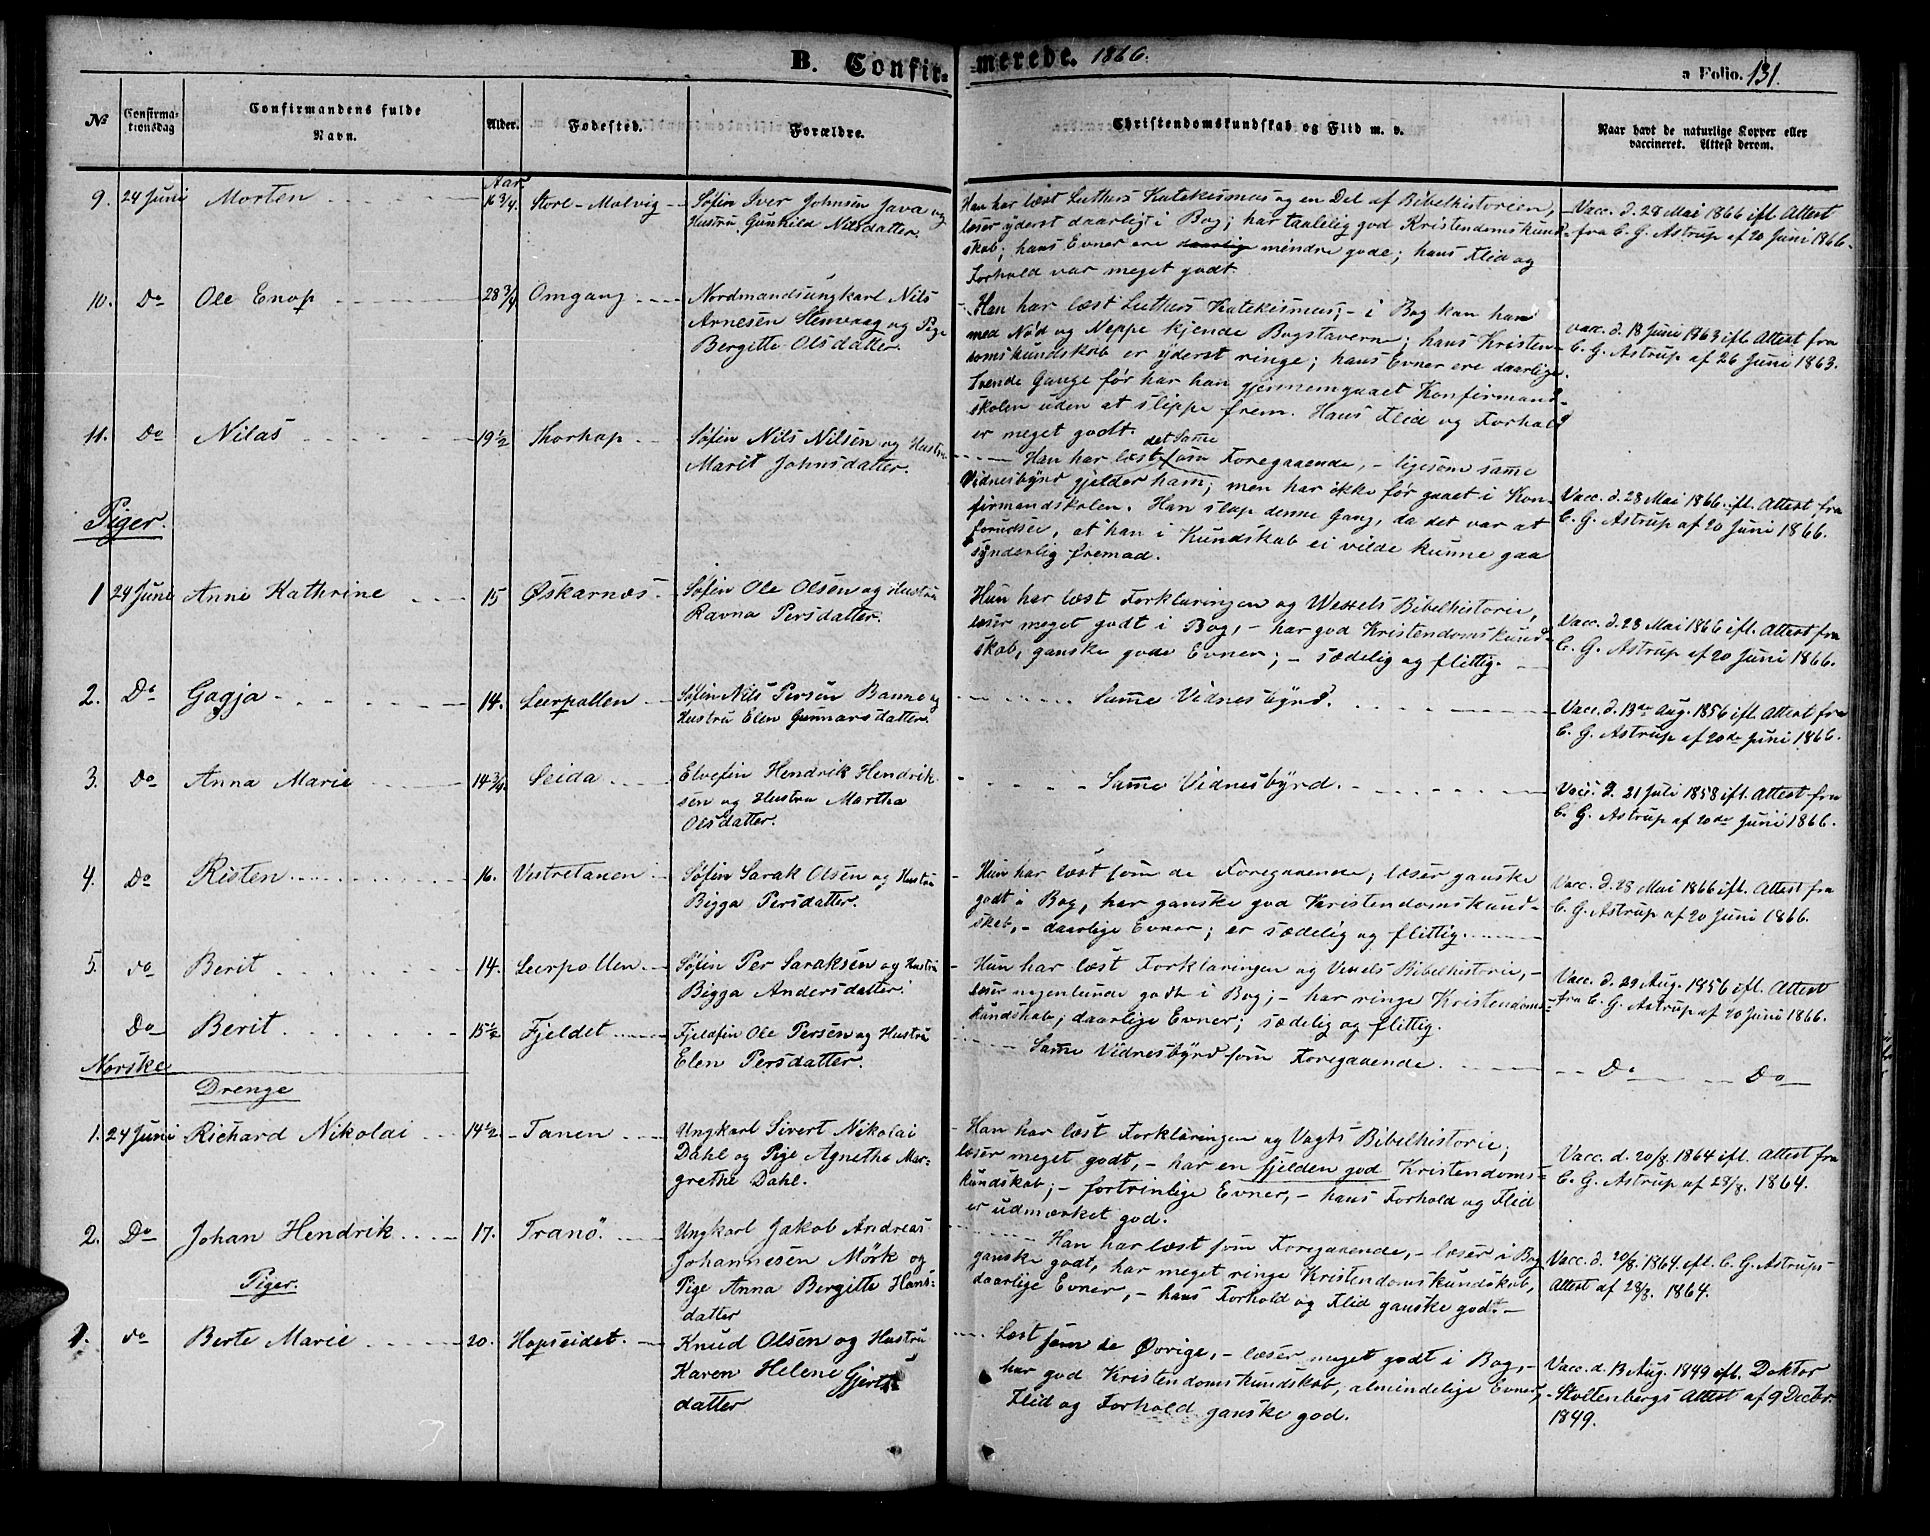 B. Confir-merede. 1866.
Folio. 131.
No
Confirma-tionsdag
Confirmandens fulde Navn.
Alder.
Fødested.
Forældre.
Christendomskundskab og Flid m. v.
Naar havt de naturlige Kopper eller vaccineret. Attest derom.
9. 24 Juni Morten Aar 16 3/4. Store-Molvig Søfin Iver Johnsen Java og
Hustru Gunhild Nilsdatter.
Han har læst Luthers Katekismus og en Del af Bibelhistorien,
læser yderst daarligt i Bog; har taalelig god Kristendomskund-
skab; hans Evner ere daarlig mindre gode; hans Flid og
Forhold var meget godt.
Vacc. d. 28 Mai 1866 ifl. Attest
fra C. G. Astrup af 20 Juni 1866.
10. Do Ole Enop 28 3/4 Omgang Nordmandsungkarl Nils
Arnesen Stenvaag og Pige
Bergitte Olsdatter.
Han har læst Luthers Katekismus; - i Bog kan han
med Nød og Neppe kjende Bogstaverne; hans Kristen-
domskundskab er yderst ringe; hans Evner ere daarlige.
Trende Gange før har han gjennemgaaet Konfirmand-
skolen uden at slippe frem. Hans Flid og Forhold
er meget godt.
vacc. d. 18 Juni 1863 ifl. Attest fra
C. G. Astrup af 26 Juni 1863.
11. Do Nilas 19 1/2 Thorhop Søfin Nils Nilsen og Hustru
Marit Johnsdatter.
det Same
Han har læst som Foregaaende, - ligesom same
Vidnesbyrd gjelder ham; men har ikke før gaaet i Kon-
firmandskolen. Han slap denne Gang, da det var at
forudsee, at han i Kundskab ei vilde kunne gaa
synderlig fremad.
Vacc. d. 28 Mai 1866. ifl. Attest fra
C. G. Astrup af 20 Juni 1866.
Piger.
1 24 Juni Anne Kathrine 15 Øskarnæs Søfin Ole Olsen og Hustru
Ravna Persdatter.
Hun har læst Forklaringen og Wexels Bibelhistorie,
læser meget godt i Bog, - har god Kristendomskund-
skab, ganske gode Evner; - sædelig og flittig.
Vacc. d. 28 Mai 1866 ifl. Attest fra
C. G. Astrup af 20 Juni 1866.
2. Do Gagja 14. Leerpollen Søfin Nils Persen Banne og
Hustru Elen Gunnarsdatter.
Same Vidnesbyrd.
Vacc. d. 13de Aug. 1856 ifl. Attest fra
C. G. Astrup af 20de Juni 1866.
3. Do Anna Marie 14 3/4. Seida Elvefin Hendrik Hendrik-
sen og Hustru Martha
Olsdatter.
Same Vidnesbyrd.
Vacc. d. 21 Juli 1858 ifl. Attest fra
C. G. Astrup af 20de Juni 1866.
4. Do Risten 16. Vestretanen Søfin Sarak Olsen og Hustru
Bigga Persdatter.
Hun har læst som de Foregaaende; læser ganske
godt i Bog, har ganske god Kristendomskund-
skab, - daarlige Evner; er sædelig og flittig.
Vacc. d. 28 Mai 1866 ifl. Attest fra
C. G. Astrup af 20 Juni 1866.
5. do Berit 14. Leerpollen Søfin Per Saraksen og Hustru
Bigga Andersdatter.
Hun har læst Forklaringen og Vexels Bibelhistorie, -
læser nogenlunde godt i Bog; - har ringe Kristendoms-
kundskab; daarlige Evner; sædelig og flittig.
Vacc. d. 29 Aug. 1856 ifl. Attest
fra C. G. Astrup af 20 Juni 1866.
Do Berit 15 1/2 Fjeldet Fjeldfin Ole Persen og Hustru
Elen Persdatter.
Same Vidnesbyrd som Foregaaende.
Do Do
Norske
Drenge
1. 24 Juni Richard Nikolai 14 1/2 Tanen Ungkarl Sivert Nikolai
Dahl og Pige Agnethe Mar-
grethe Dahl.
Han har læst Forklaringen og Vogts Bibelhistorie;
læser meget godt, - har en sjelden god Kristendoms-
kundskab; - fortrinlige Evner, - hans Forhold og Flid
er udmærket god.
Vacc. d. 20/8. 1864 ifl. Attest fra
C. G. Astrup af 28/8. 1864.
2. Do Johan Hendrik 17. Tranö Ungkarl Jakob Andreas
Johannesen Mörk og
Pige Anna Bergitte Hans-
datter
Han har læst som Foregaaende, - læser i Bog
ganske godt, har meget ringe Kristendomskundskab,
daarlige Evner, - hans Forhold og Flid ganske god. -
Vacc. d. 20/8. 1864. ifl. C. G. Astrups
Attest af 28/8. 1864.
Piger.
1. do Berte Marie 20. Hopseidet Knud Olsen og Hustru
Karen Helene Gjerts
datter
Læst som de Øvrige, - læser meget godt i Bog, -
har god Kristendomskundskab, almindelige Evner,
Flid og Forhold ganske god.
Vacc. d. 13 Aug. 1849 ifl. Doktor
Stoltenbergs Attest af 9 Decbr.
1849.